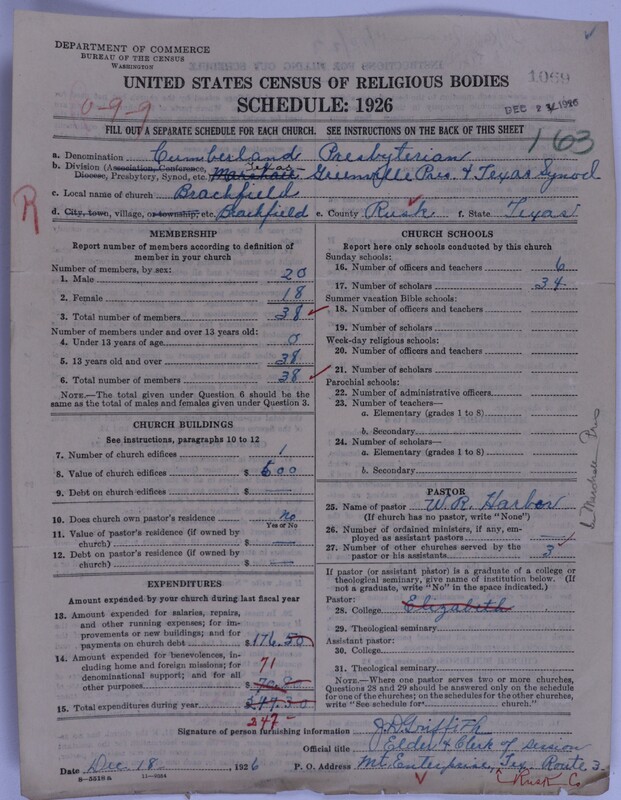 DEPARTMENT OF COMMERCE
BUREAU OF THE CENSUS
WASHINGTON
1069
UNITED STATES CENSUS OF RELIGIOUS BODIES
SCHEDULE: 1926
0-9-9
DEC 23 1926
FILL OUT A SEPARATE SCHEDULE FOR EACH CHURCH. SEE INSTRUCTIONS ON THE BACK OF THIS SHEET
163
a. Denomination Cumberland Presbyterian
b. Division (Association, Conference, Texas
Diocese, Presbytery, Synod, etc.) Marshall Greenville Pres. & Texas Synod
c. Local name of church Brachfield
R
d. City, town, village, or township, etc. Brachfield e. County Rusk f. State Texas
MEMBERSHIP
Report number of members according to definition of
member in your church
Number of members, by sex:
1. Male 20
2. Female 18
3. Total number of members 38
Number of members under and over 13 years old:
4. Under 13 years of age 0
5. 13 years old and over 38
6. Total number of members 38
NOTE.—The total given under Question 6 should be
the same as the total of males and females given under Question 3.
CHURCH BUILDINGS
See instructions, paragraphs 10 to 12
7. Number of church edifices 1
8. Value of church edifices $ 600
9. Debt on church edifices $ —
10. Does church own pastor's residence No
Yes or No
11. Value of pastor's residence (if owned by
church) $ —
12. Debt on pastor's residence (if owned by
church) $ —
EXPENDITURES
Amount expended by your church during last fiscal year
13. Amount expended for salaries, repairs,
and other running expenses; for im-
provements or new buildings; and for
payments on church debt $ 176.50
14. Amount expended for benevolences, in-
cluding home and foreign missions; for
denominational support; and for all
other purposes $ 70.80
71
15. Total expenditures during year 247.30
247-
CHURCH SCHOOLS
Report here only schools conducted by this church
Sunday schools:
16. Number of officers and teachers 6
17. Number of scholars 34
Summer vacation Bible schools:
18. Number of officers and teachers
19. Number of scholars
Week-day religious schools:
20. Number of officers and teachers
21. Number of scholars
Parochial schools:
22. Number of administrative officers
23. Number of teachers—
a. Elementary (grades 1 to 8)
b. Secondary
24. Number of scholars—
a. Elementary (grades 1 to 8)
b. Secondary
Marshall Pres
PASTOR
25. Name of pastor W. R. Harbor
(If church has no pastor, write "None")
26. Number of ordained ministers, if any, em-
ployed as assistant pastors —
27. Number of other churches served by the
pastor or his assistants 3
If pastor (or assistant pastor) is a graduate of a college or
theological seminary, give name of institution below. (If
not a graduate, write "No" in the space indicated.)
Pastor:
28. College Elizabeth
29. Theological seminary
Assistant pastor:
30. College
31. Theological seminary
NOTE.—Where one pastor serves two or more churches,
Questions 28 and 29 should be answered only on the schedule
for one of the churches; on the schedules for the other churches,
write "See schedule for church."
Signature of person furnishing information J. D. Griffith
Official title Elder & Clerk of session
Date Dec. 18, 1926 P. O. Address Mt. Enterprise, Tex. Route 3.
8-5518 a
Rusk Co